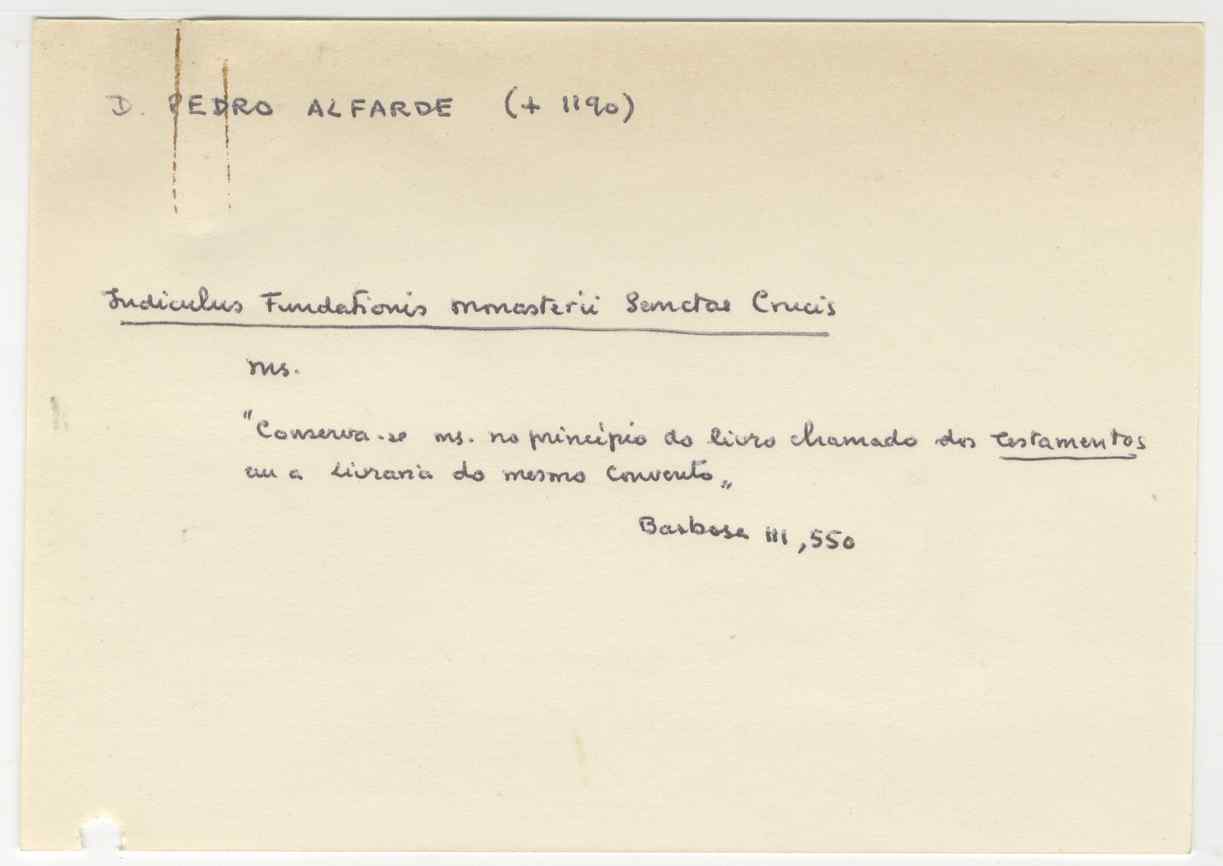 D. PEDRO ALFARDE (+ 1190)
Indiculus Fundationis Monasterii Sanctae Crucis
ms.
"Conserva-se ms. no princípio do livro chamado dos Testamentos
em a Livraria do mesmo Convento"
Barbosa III, 550